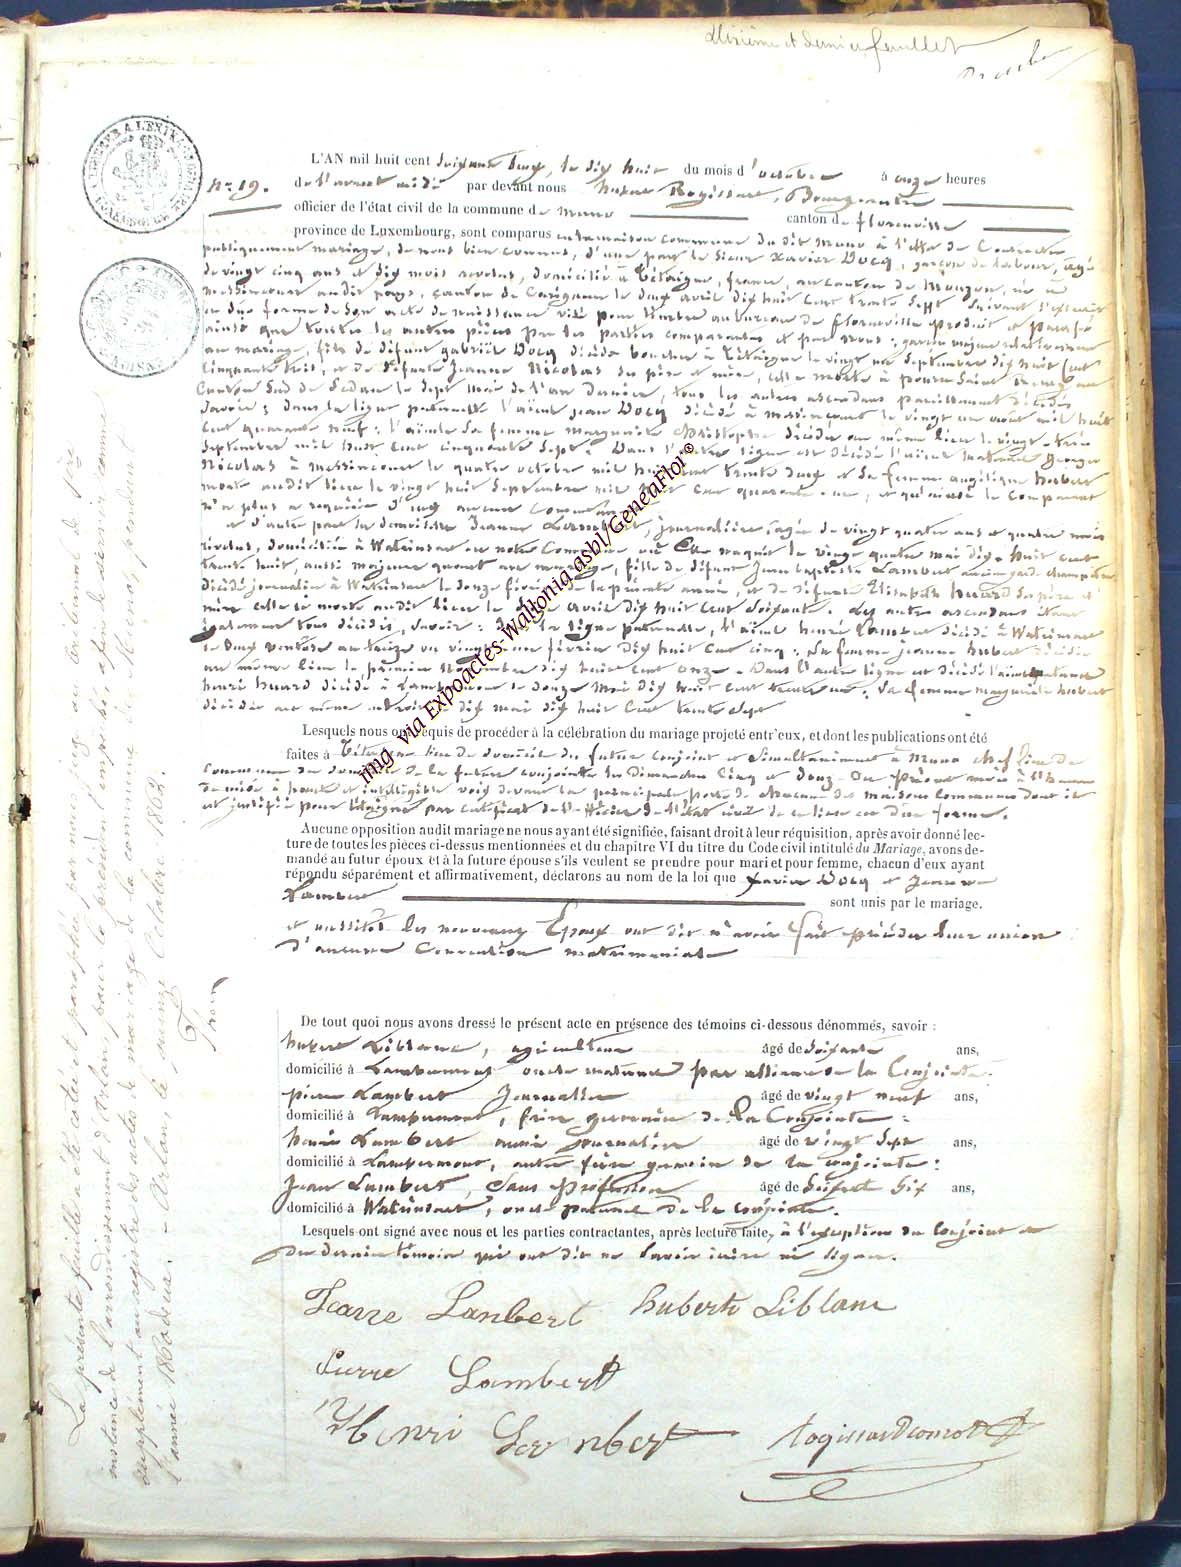 et dernier feuillet
N° 19.
L'AN mil huit cent soixante deux, le dix huit du mois d'octobre à onze heures
de l'avant midi par devant nous Bourgmestre
officier de l'état civil de la commune de Muno canton de Florenville
province de Luxembourg, sont comparus en la maison commune du dit Muno à l'effet de Contracter
publiquement mariage, de nous bien connus, d'une part le sieur Xavier Docq, garçon de labour, âgé
de vingt cinq ans et dix mois révolus, domicilié à Tétaigne, france, au canton de Mouzon, né à
Messincourt audit pays, canton de Carignan le deux avril dix huit cent trente sept suivant l'extrait
en due forme de son acte de naissance visé pour timbre au bureau de florenville produit et paraphé
ainsi que toutes les autres pièces par les parties comparantes et par nous; garçon majeur relativement
au mariage, fils de défunt gabriël Docq décédé à Tétaigne le vingt un septembre dix huit cent
Cinquante trois, et de défunte Jeanne Nicolas ses père et mère, celle morte à
Canton Sud de Sedan le sept de l'an dernier, tous les autres ascendans pareillement décédés
Savoir; dans la ligne paternelle l'aïeul jean Docq décédé à Messincourt le vingt un août mil huit
cent quarante neuf; l'aïeule sa femme marguerite Christophe décédée au même lieu le vingt trois
septembre mil huit cent cinquante sept. Dans l'autre ligne est décédé l'aïeul maternel George
Nicolas à Messincourt le quatre octobre mil huit cent trente deux et sa femme angélique hubert
morte audit lieu le vingt huit septembre mil huit cent quarante un, le comparant
n'a plus
et d'autre part la demoiselle Jeanne Lambert, journalière, âgée de vingt quatre ans et quatre mois
révolus, domiciliée à Watrinsart en notre Commune où Elle naquit le vingt quatre mai dix huit cent
trente huit, aussi majeure quant au mariage, fille de défunt Jean baptiste Lambert ancien garde champêtre
décédé journalier à Watrinsart le douze février de la présente année, et de défunte Elisabeth huard ses père et
mère celle ci morte audit lieu le avril dix huit cent soixante. Les autres ascendans étant
également tous décédés, savoir: dans la ligne paternelle, l'aïeul henri Lambert décédé à Watrinsart
le deux ventôse an treize ou vingt un février dix huit cent cinq; sa femme jeanne hubert décédée
au même lieu le premier novembre dix huit cent onze. Dans l'autre ligne est décédé l'aïeul maternel
henri huard décédé à Lambermont le douze mai dix huit cent trente un, sa femme marguerite hubert
décédée au même endroit le dix mai dix huit cent trente sept
Lesquels nous ont requis de procéder à la célébration du mariage projeté entr'eux, et dont les publications ont été
faites à Tétaigne lieu de domicile du futur conjoint et simultanément à Muno chef lieu de
Commune du domicile de la future conjointe les Dimanches cinq et douze du présent mois à l'heure
de midi à haute et intelligible voix devant la principale porte de chacune des maisons communes dont il
est justifié pour Tétaigne par certificat de l'officier de l'état civil de ce lieu en due forme.
Aucune opposition audit mariage ne nous ayant été signifiée, faisant droit à leur réquisition, après avoir donné lec-
ture de toutes les pièces ci-dessus mentionnées et du chapitre VI du titre du Code civil intitulé du Mariage, avons de-
mandé au futur époux et à la future épouse s'ils veulent se prendre pour mari et pour femme, chacun d'eux ayant
répondu séparément et affirmativement, déclarons au nom de la loi que Xavier Docq et Jeanne
Lambert sont unis par le mariage.
et aussitôt les nouveaux Epoux ont dit n'avoir fait précéder leur union
d'aucune Convention matrimoniale
De tout quoi nous avons dressé le présent acte en présence des témoins ci-dessous dénommés, savoir :
hubert Liblanc, agriculteur âgé de soixante ans,
domicilié à Lambermont oncle maternel par alliance de la Conjointe.
pierre Lambert Journalier âgé de vingt neuf ans,
domicilié à Lambermont, frère germain de la Conjointe :
henri Lambert aussi Journalier âgé de vingt sept ans,
domicilié à Lambermont, autre frère germain de la conjointe :
Jean Lambert, sans profession âgé de soixante six ans,
domicilié à Watrinsart, oncle paternel de la conjointe.
Lesquels ont signé avec nous et les parties contractantes, après lecture faite, à l'exception du Conjoint et
du dernier témoin qui ont dit ne savoir écrire ni signer.
Lambert huberte Liblanc
Pierre Lambert
Henri Lambert
La présente feuille a été cotée et paraphée par nous juge au tribunal de 1ère
instance de l'arrondissement d'Arlon, pour le président empêché, afin de servir comme
supplément au registre des actes de mariage de la commune de Muno, pendant
l'année 1860 deux. - Arlon, le quinze Octobre 1862.
img via Expoactes-Wallonia asbl/GeneaFlor ©